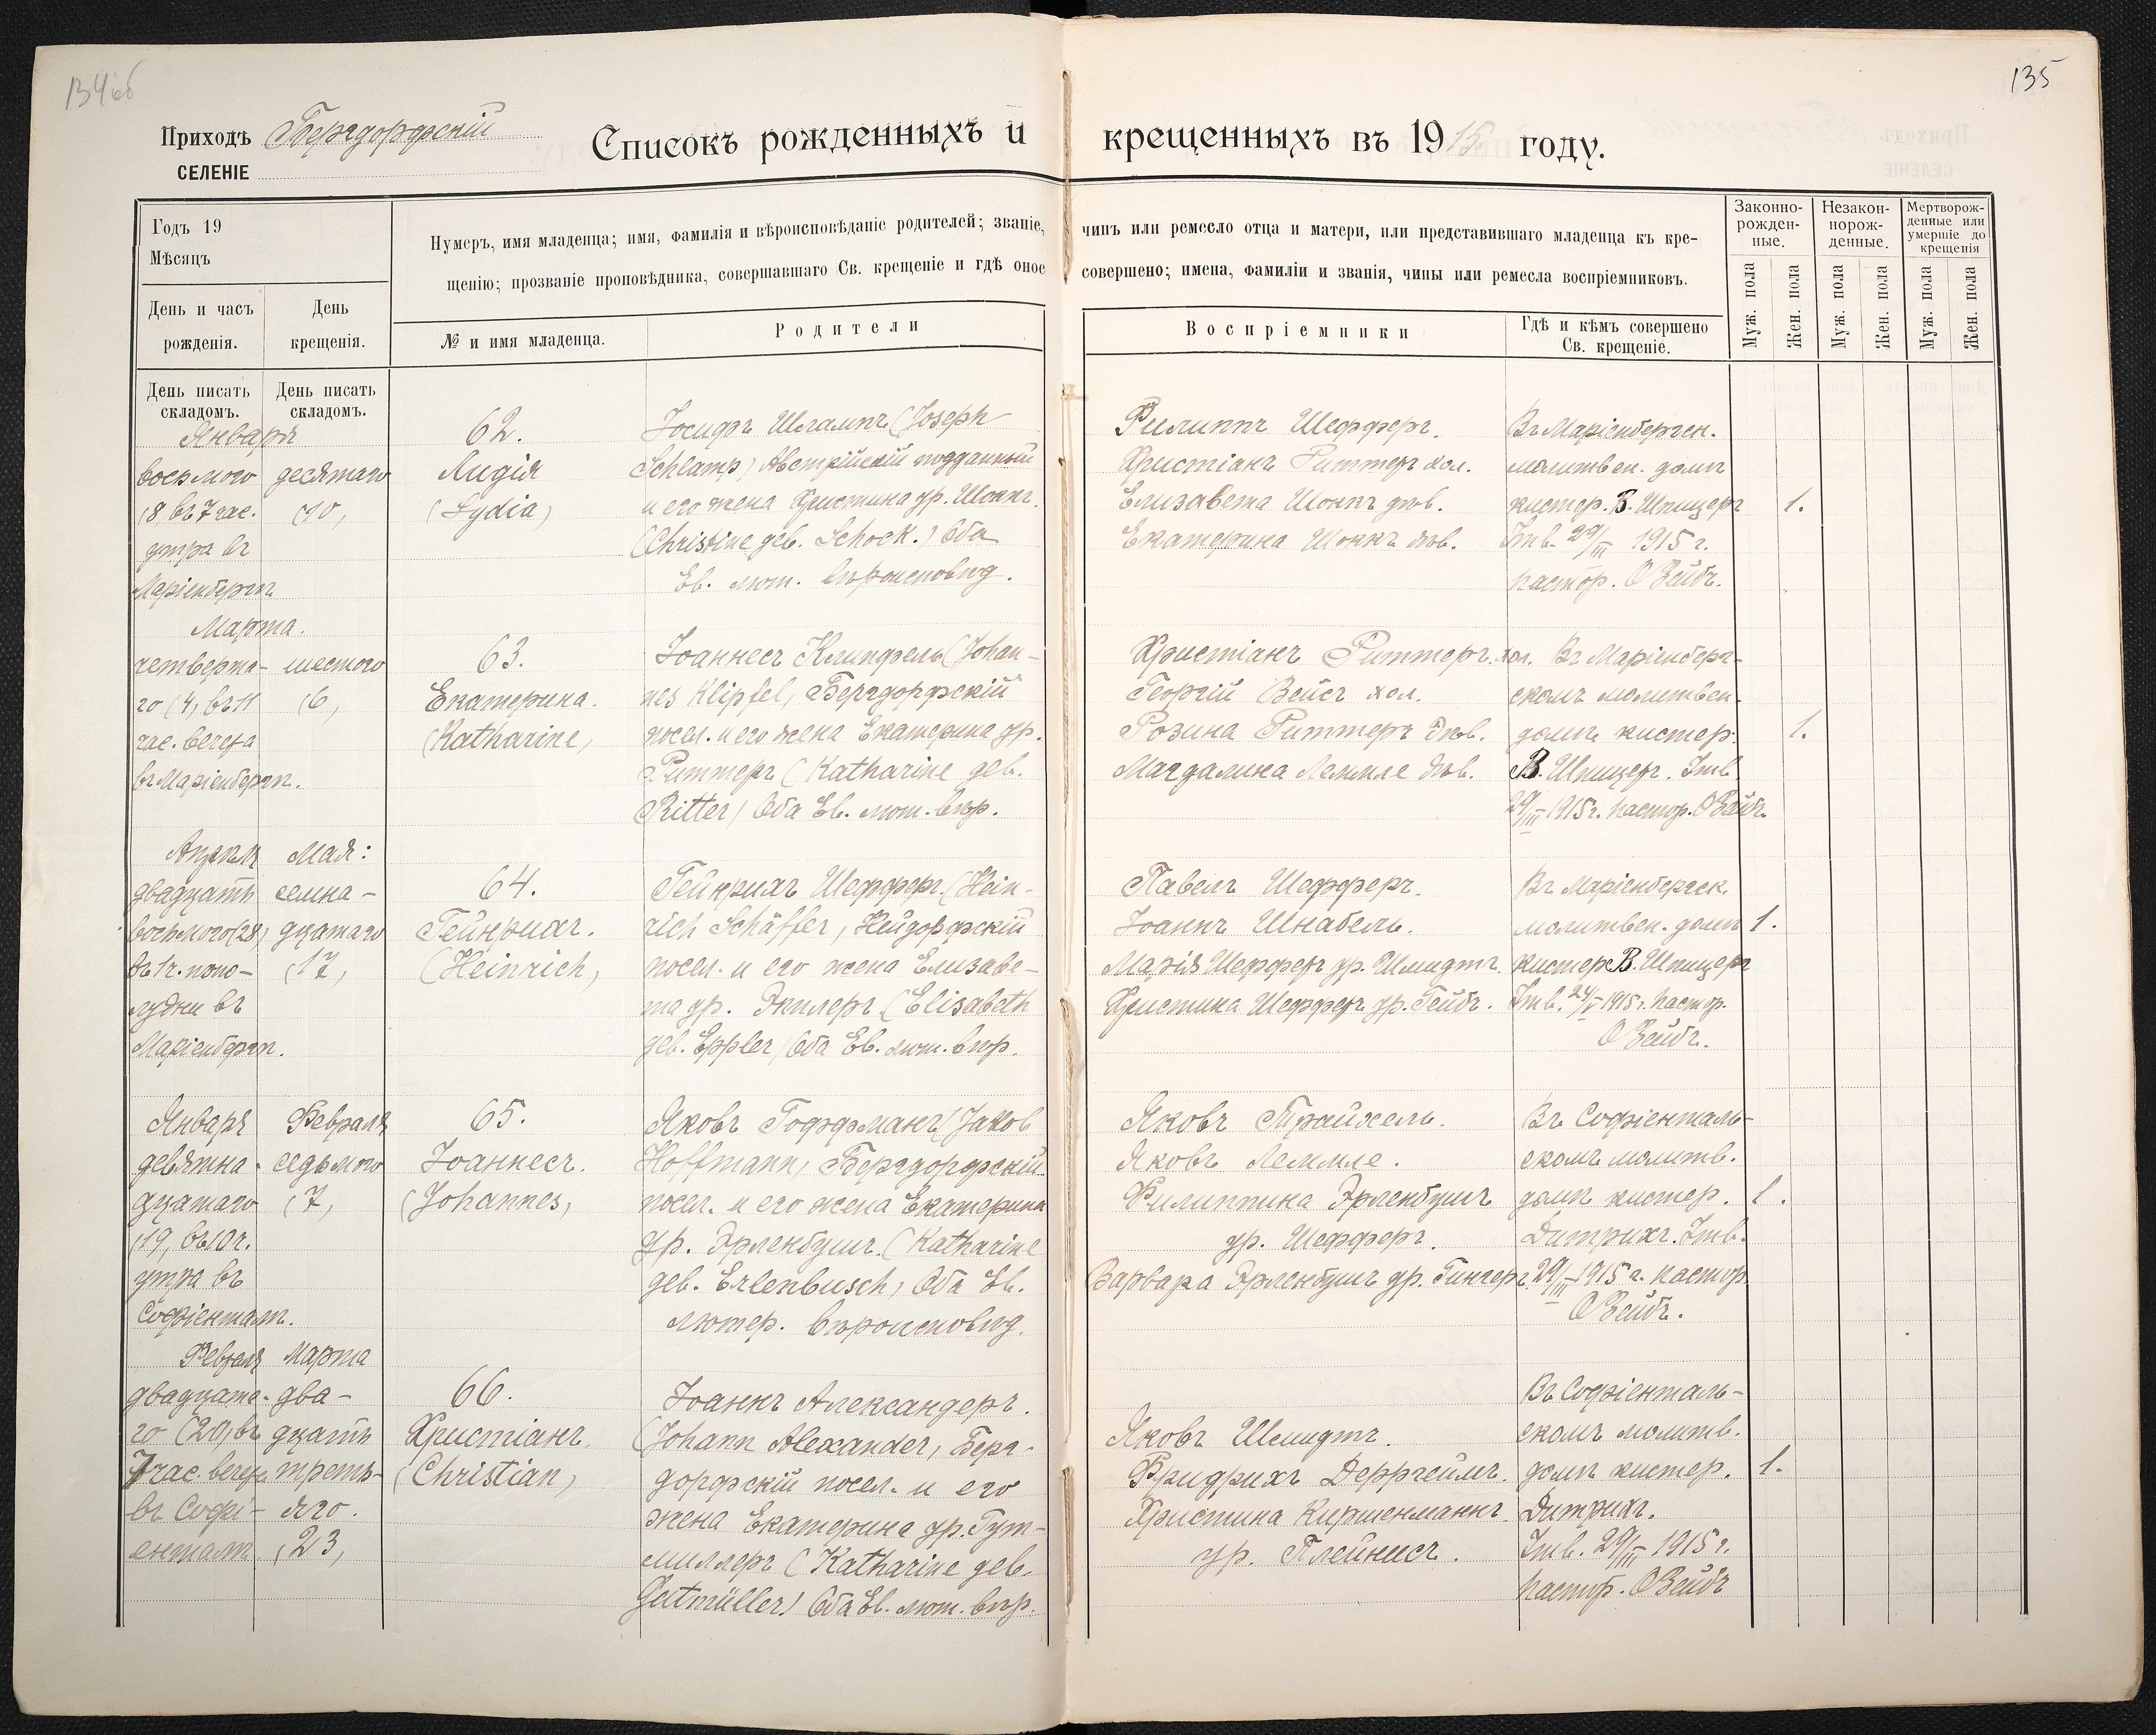 134об
135
Приходъ Бергдорфскій
СЕЛЕНІЕ
Списокъ рожденныхъ и крещенныхъ въ 1915 году.
Годъ 19
Мѣсяцъ
День и часъ рожденія.
День крещенія.
Нумеръ, имя младенца; имя, фамилія и вѣроисповѣданіе родителей; званіе, чинъ или ремесло отца и матери, или представившаго младенца къ кре-
щенію; прозваніе проповѣдника, совершавшаго Св. крещеніе и гдѣ оное совершено; имена, фамиліи и званія, чины или ремесла воспріемниковъ.
№ и имя младенца.
Родители
Воспріемники
Гдѣ и кѣмъ совершено Св. крещеніе.
Законно-рожден-ные.
Незакон-норож-денные.
Мертворож-денные или умершіе до крещенія
Муж. пола
Жен. пола
Муж. пола
Жен. пола
Муж. пола
Жен. пола
День писать складомъ.
День писать складомъ.
Января
восьмого
(8, въ 7 час.
утра въ
Маріенбергѣ
десятаго
(10,
62.
Лидія
(Lydia)
Іосифъ Шлампъ (Joseph
Schlamp) Австрійскій подданный
и его жена Христина ур. Шоккъ.
(Christine geb. Schock.) Оба
Ев. лют. вѣроисповѣд.
Филиппъ Шефферъ.
Христіанъ Риттеръ хол.
Елизавета Шоккъ дѣв.
Екатерина Шоккъ дѣв.
Въ Маріенберген.
молитвен. домѣ
кистер. В. Шпицеръ
Утв. 29/III 1915 г.
пастор. О Зейбъ.
1.
Марта.
четверта-
го (4, въ 11
час. вечера
въ Маріенбергѣ.
шестого
(6,
63.
Екатерина.
(Katharine,
Іоаннесъ Клипфель (Johan-
nes Klipfel, Бергдорфскій
посел. и его жена Екатерина ур.
Риттеръ (Katharine geb.
Ritter) Оба Ев. лют. вѣр.
Христіанъ Риттеръ хол.
Георгій Вейсъ хол.
Розина Риттеръ дѣв.
Магдалина Леммле дѣв.
Въ Маріенберг-
скомъ молитвен.
домѣ кистер.
В. Шпицеръ. Утв.
29/III 1915 г. пастор. О Зейбъ.
1.
Апрѣля
двадцать
восьмого (28)
въ 1 ч. попо-
лудни въ
Маріенбергѣ.
Мая:
семна-
дцатаго
(17,
64.
Гейнрихъ.
(Heinrich,
Гейнрихъ Шефферъ. (Hein-
rich Schäffer, Нейдорфскій
посел. и его жена Елизаве-
та ур. Эпплеръ (Elisabeth
geb. Eppler) Оба Ев. лют. вѣр.
Павелъ Шефферъ.
Іоаннъ Шнабель.
Марія Шефферъ ур. Шмидтъ.
Христина Шефферъ ур. Гейбъ.
Въ Маріенбергск.
молитвен. домѣ
кистер В. Шпицеръ
Утв. 24/V 1915 г. пастор.
О Зейбъ.
1.
Января
девятна-
дцатаго
(19, въ 10 ч.
утра въ
Софіенталѣ.
Февраля
седьмого
(7,
65.
Іоаннесъ.
(Johannes,
Яковъ Гоффманъ (Jakob
Hoffmann, Бергдорфскій
посел. и его жена Екатерина
ур. Эрленбушъ. (Katharine
geb. Erlenbusch, Оба Ев.
лютер. вѣроисповѣд.
Яковъ Трайхель.
Яковъ Леммле.
Филиппина Эрленбушъ
ур. Шефферъ.
Варвара Эрленбушъ ур. Гингеръ.
Въ Софіенталь-
скомъ молитв.
домѣ кистер.
Дитрихъ. Утв.
29/III 1915 г. пастор.
О Зейбъ.
1.
Февраля
двадцата-
го (20, въ
7 час. вечера
въ Софі-
енталѣ.
Марта
два-
дцать
треть-
яго.
(23,
66.
Христіанъ.
(Christian,
Іоаннъ Александеръ.
(Johann Alexander, Берг-
дорфскій посел. и его
жена Екатерина ур. Гут-
миллеръ (Katharine geb.
Gutmüller) Оба Ев. лют. вѣр.
Яковъ Шмидтъ.
Фридрихъ Дерргеймъ.
Христина Киршенманнъ
ур. Плейнисъ.
Въ Софіенталь-
скомъ молитв.
домѣ кистер.
Дитрихъ.
Утв. 29/III 1915 г.
пастор. О Зейбъ
1.